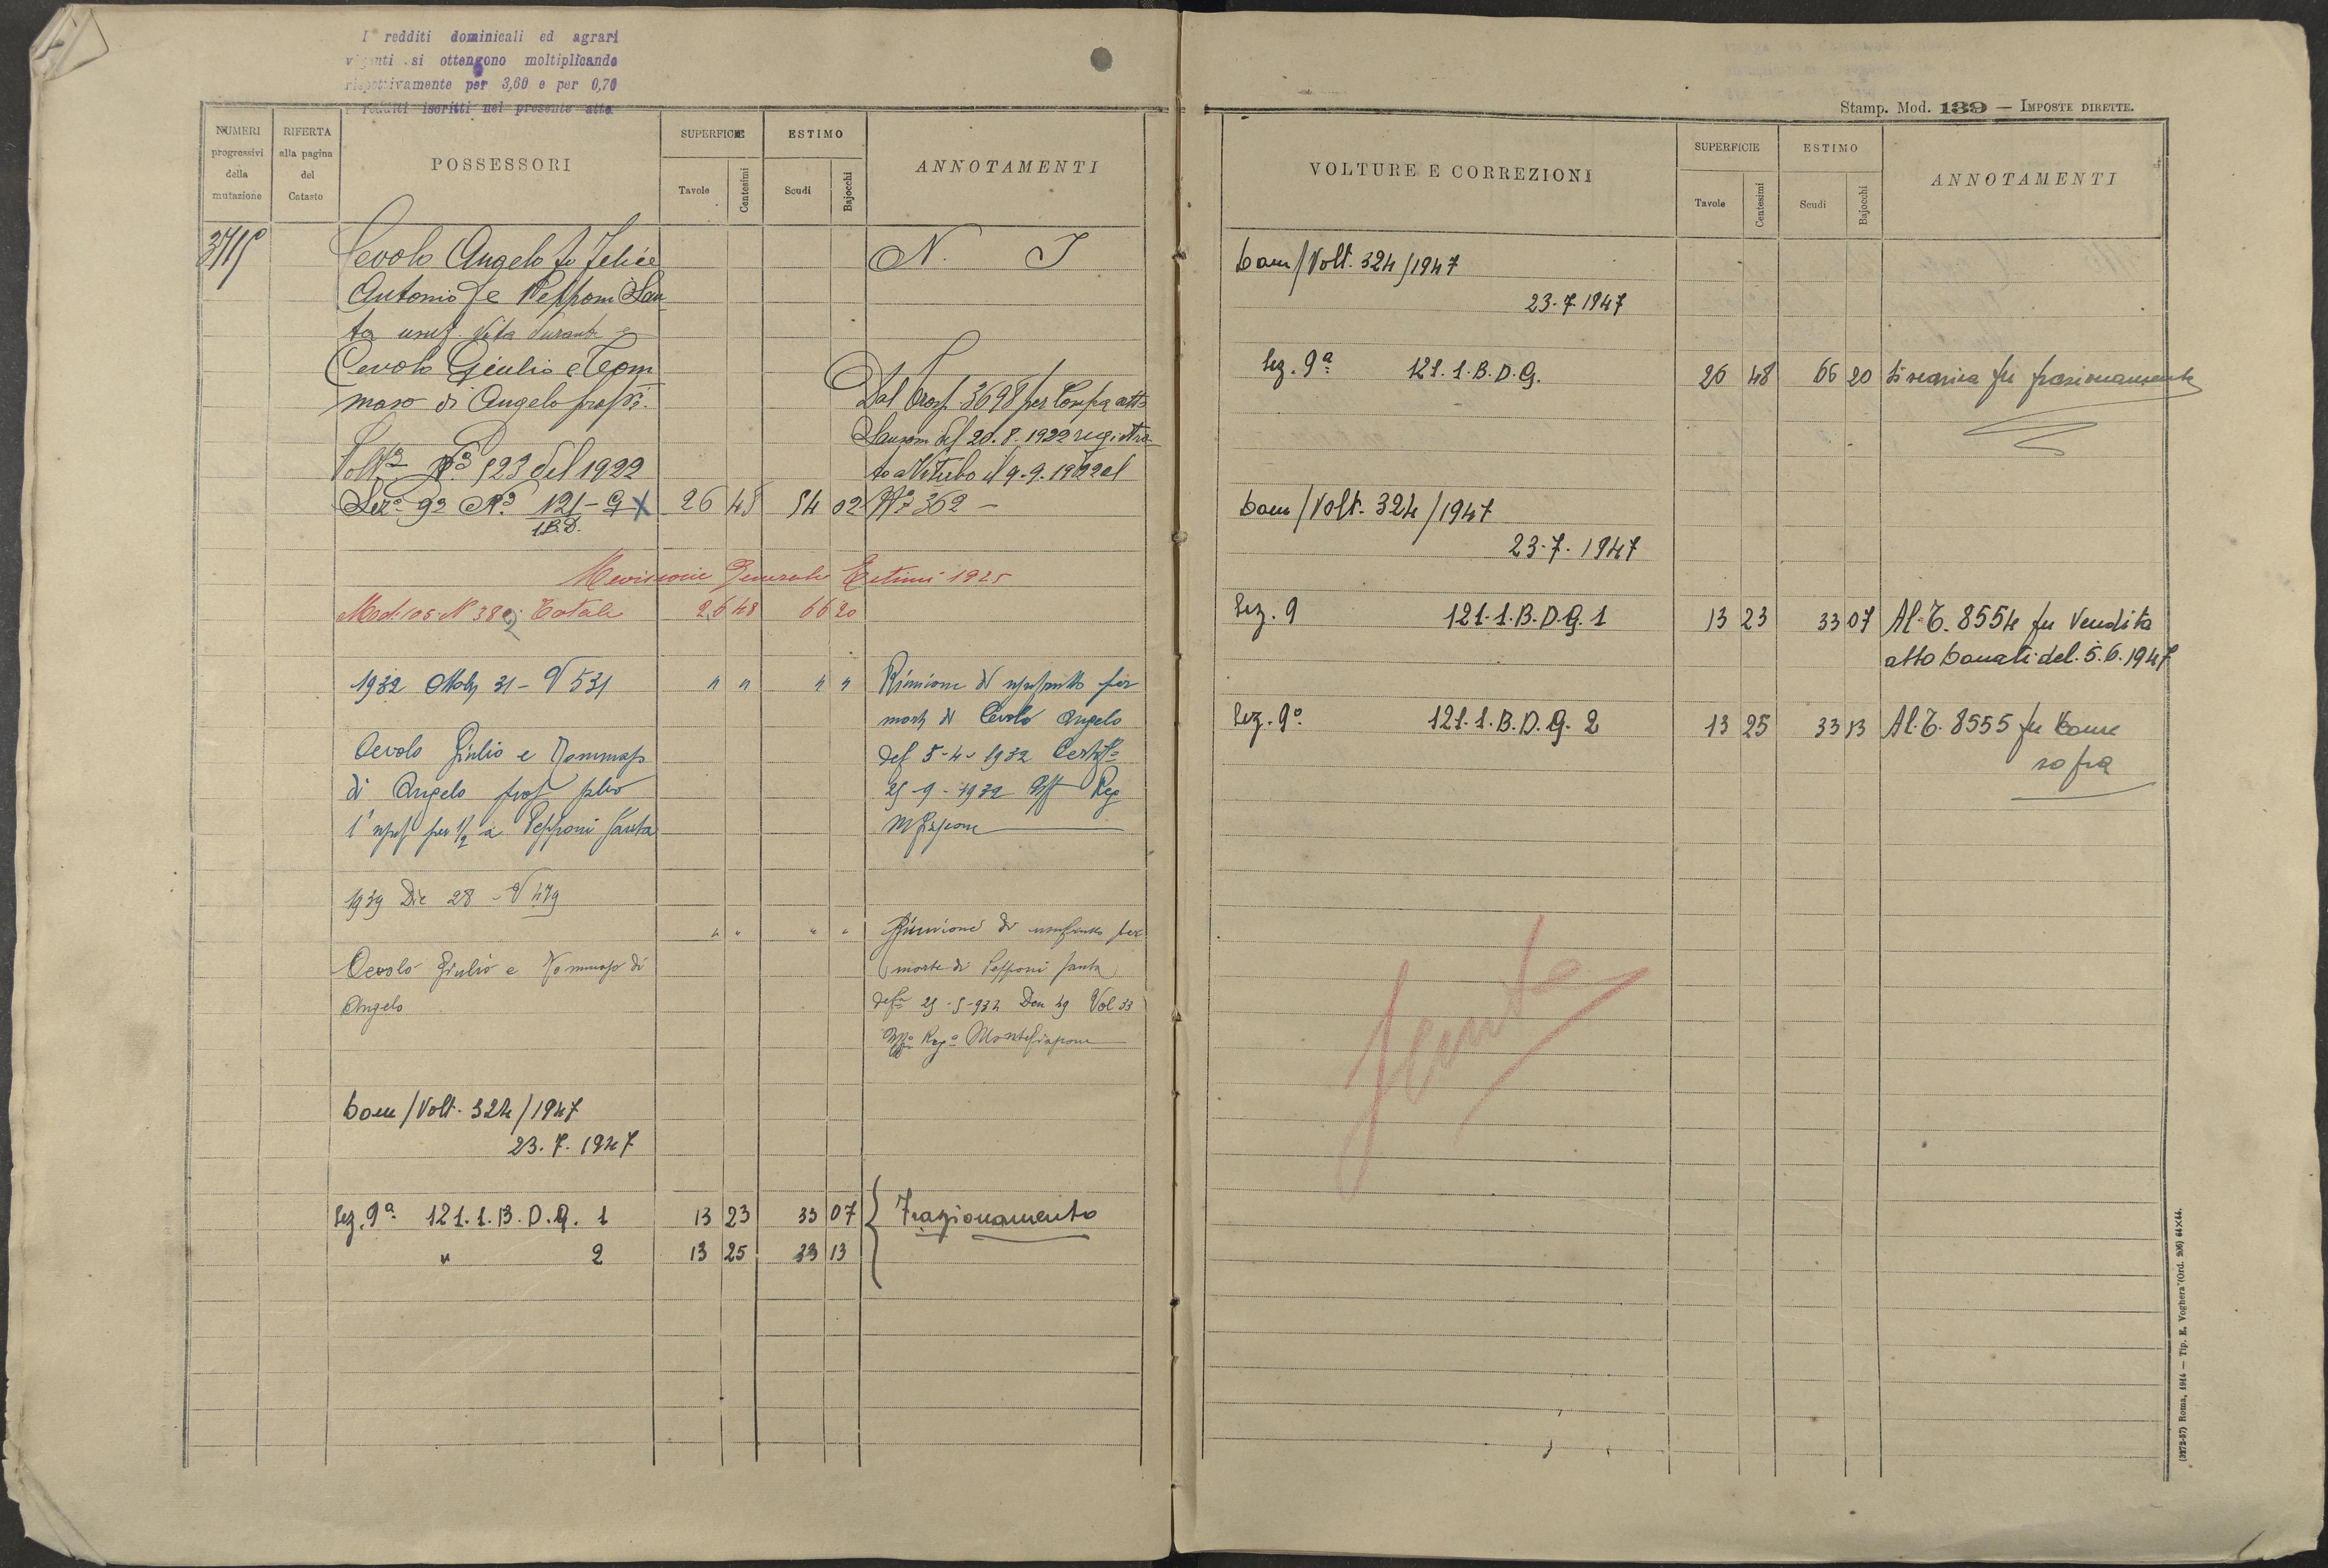 I redditi dominicali ed agrari
vigenti si ottengono moltiplicando
rispettivamente per 3,60 e per 0,70
redditi iscritti nel presente atto
NUMERI progressivi della mutazione
RIFERTA alla pagina del Catasto
POSSESSORI
SUPERFICIE
Tavole
Centesimi
ESTIMO
Scudi
Bajocchi
ANNOTAMENTI
3715
Cevolo Angelo fu Felice N. I
Antonio e Pepponi San
ta usuf vita durante e
Cevolo Giulio e Tom
maso di Angelo propri.
Dal Trasp. 3698 per Compra atto
del 20.8.1922 registra
Volt.ª N.º 523 del 1922
to a Viterbo il 9.9.1922 al
Sez.e 9ª N.º 121-G X 26 48 54 02 N.º 362 —
1.B.D.
Revisione Generale Estimi 1925
Mod. 105 N 389 Totale 26 48 66 20
1932 Ottob 31 - V 531 " " " " Riunione di usufrutto per
morte di Cevolo Angelo
Cevolo Giulio e Tommaso def 5-4-1932 Certif.º
di Angelo prop 25-9-1932 Uff Reg
l'usuf per 1/2 a Pepponi Santa
1939 Dic 28 - V 479
" " " " Riunione di usufrutto per
Cevolo Giulio e Tommaso di morte di Pepponi Santa
Angelo 25-5-934 Den 49 Vol 33
Uff.º Reg.º Montefiascone
Cam/Volt. 324/1947
23.7.1947
Sez. 9ª 121.1.B.D.G. 1 13 23 33 07 Frazionamento
" 2 13 25 33 13
Stamp. Mod. 139 — IMPOSTE DIRETTE.
VOLTURE E CORREZIONI
SUPERFICIE
Tavole
Centesimi
ESTIMO
Scudi
Bajocchi
ANNOTAMENTI
Cam/Volt. 324/1947
23.7.1947
Sez. 9ª 121.1.B.D.G. 26 48 66 20 Si scarica per frazionamento
Cam/Volt. 324/1947
23.7.1947
Sez. 9 121.1.B.D.G.1 13 23 33 07 Al T. 8554 per Vendita
atto Donati del 5.6.1947
Sez. 9ª 121.1.B.D.G.2 13 25 33 13 Al T. 8555 per Come
sopra
(3272-57) Roma, 1914 — Tip. E. Voghera (Ord. 206) 64×44.